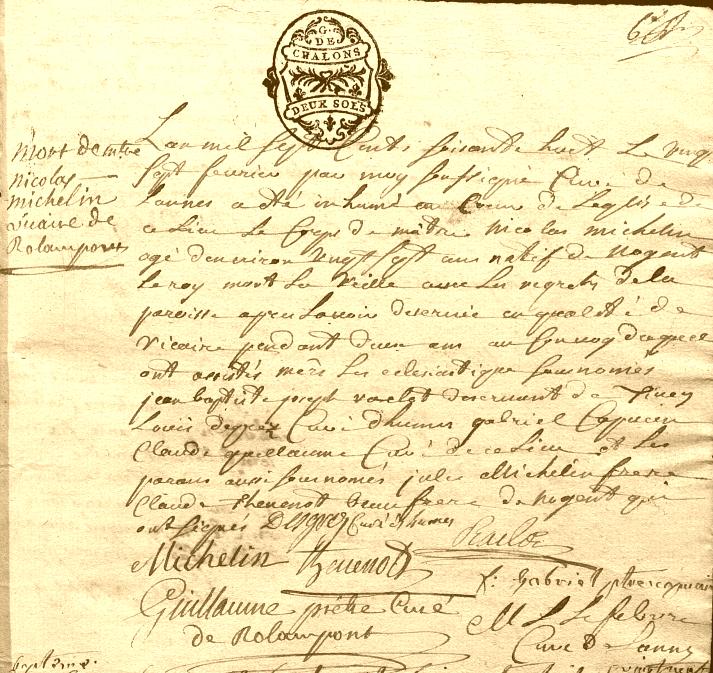 G. DE
CHALONS
DEUX SOLS
Mort de mtre
nicolas
michelin
vicaire de
Rolampont
L'an mil sept Cents soisante huit Le vingt
sept fevrier par moy soussigné Curé de
Lannes a été inhumé au Cœur de L'eglise de
ce Lieu Le Corps de maitre Nicolas michelin
agé denviron vingt sept ans natif de Nogent
Le roy mort La veille avec Les regrets de la
paroisse apres Lavoir deservie en qualité de
Vicaire pendant deux ans au Convoy duquel
ont assistés mers Les eclesiastique sournomés
jean baptiste joseph deservant de
Louis degrez Curé dhumes gabriel Capucin
Claude guillaume Curé de ce Lieu et Les
parans aussi sournomés jules Michelin frere
Claude thevenot beaufrere de Nogent qui
ont signés Degrez Curé d'humes
Michelin thevenot
f: gabriel ptre capucin
Guillaume prêtre Curé
de Rolampont
M L Lefebvre
Curé De Lannes